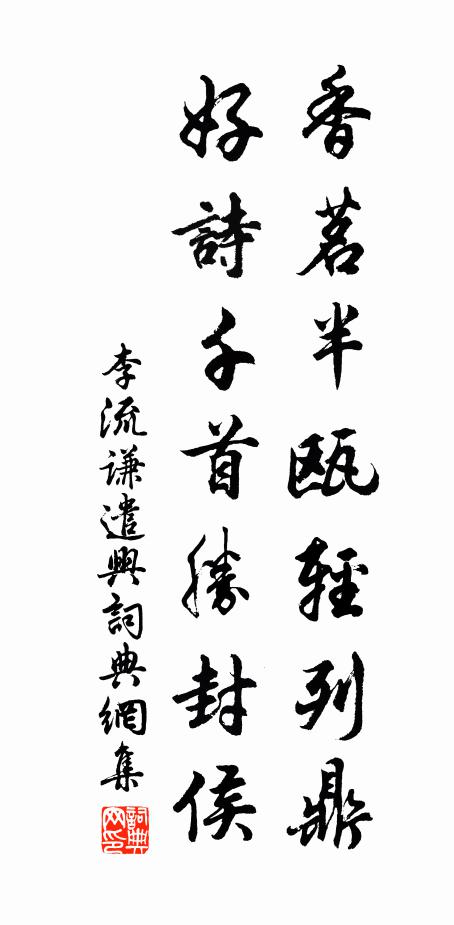 香茗半甌輕列鼎
好詩千首勝封侯
李流謙遣興詞典網集
詞典网印